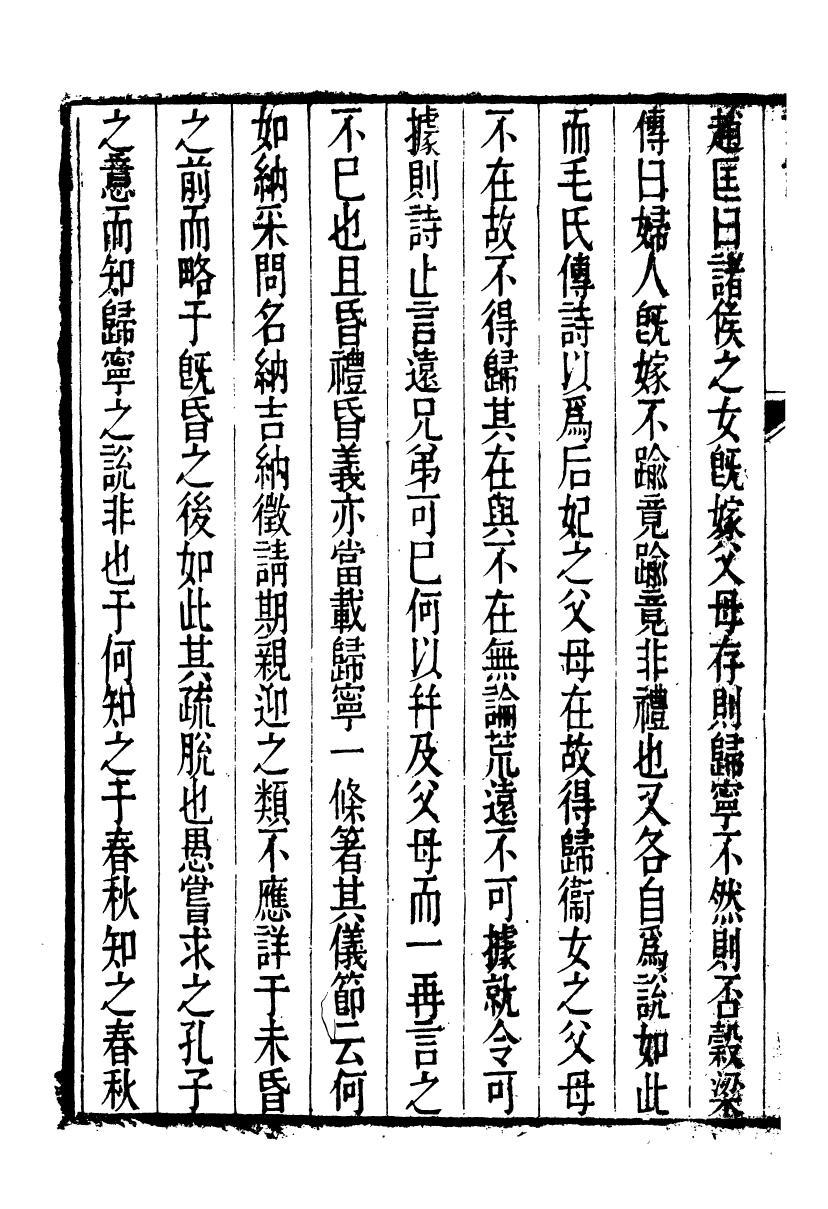 趙匡曰諸侯之女旣嫁父母存則歸寧不然則否穀梁
傳曰婦人旣嫁不踰竟踰竟非禮也又各自爲說如此
而毛氏傳詩以爲后妃之父母在故得歸衞女之父母
不在故不得歸其在與不在無論荒遠不可據就令可
據則詩止言遠兄弟可巳何以幷及父母而一再言之
不巳也且昏禮昏義亦當載歸寧一條箸其儀節云何
如納采問名納吉納徵請期親迎之類不應詳于未昏
之前而略于旣昏之後如此其疏脫也愚嘗求之孔子
之意而知歸寧之說非也于何知之于春秋知之春秋